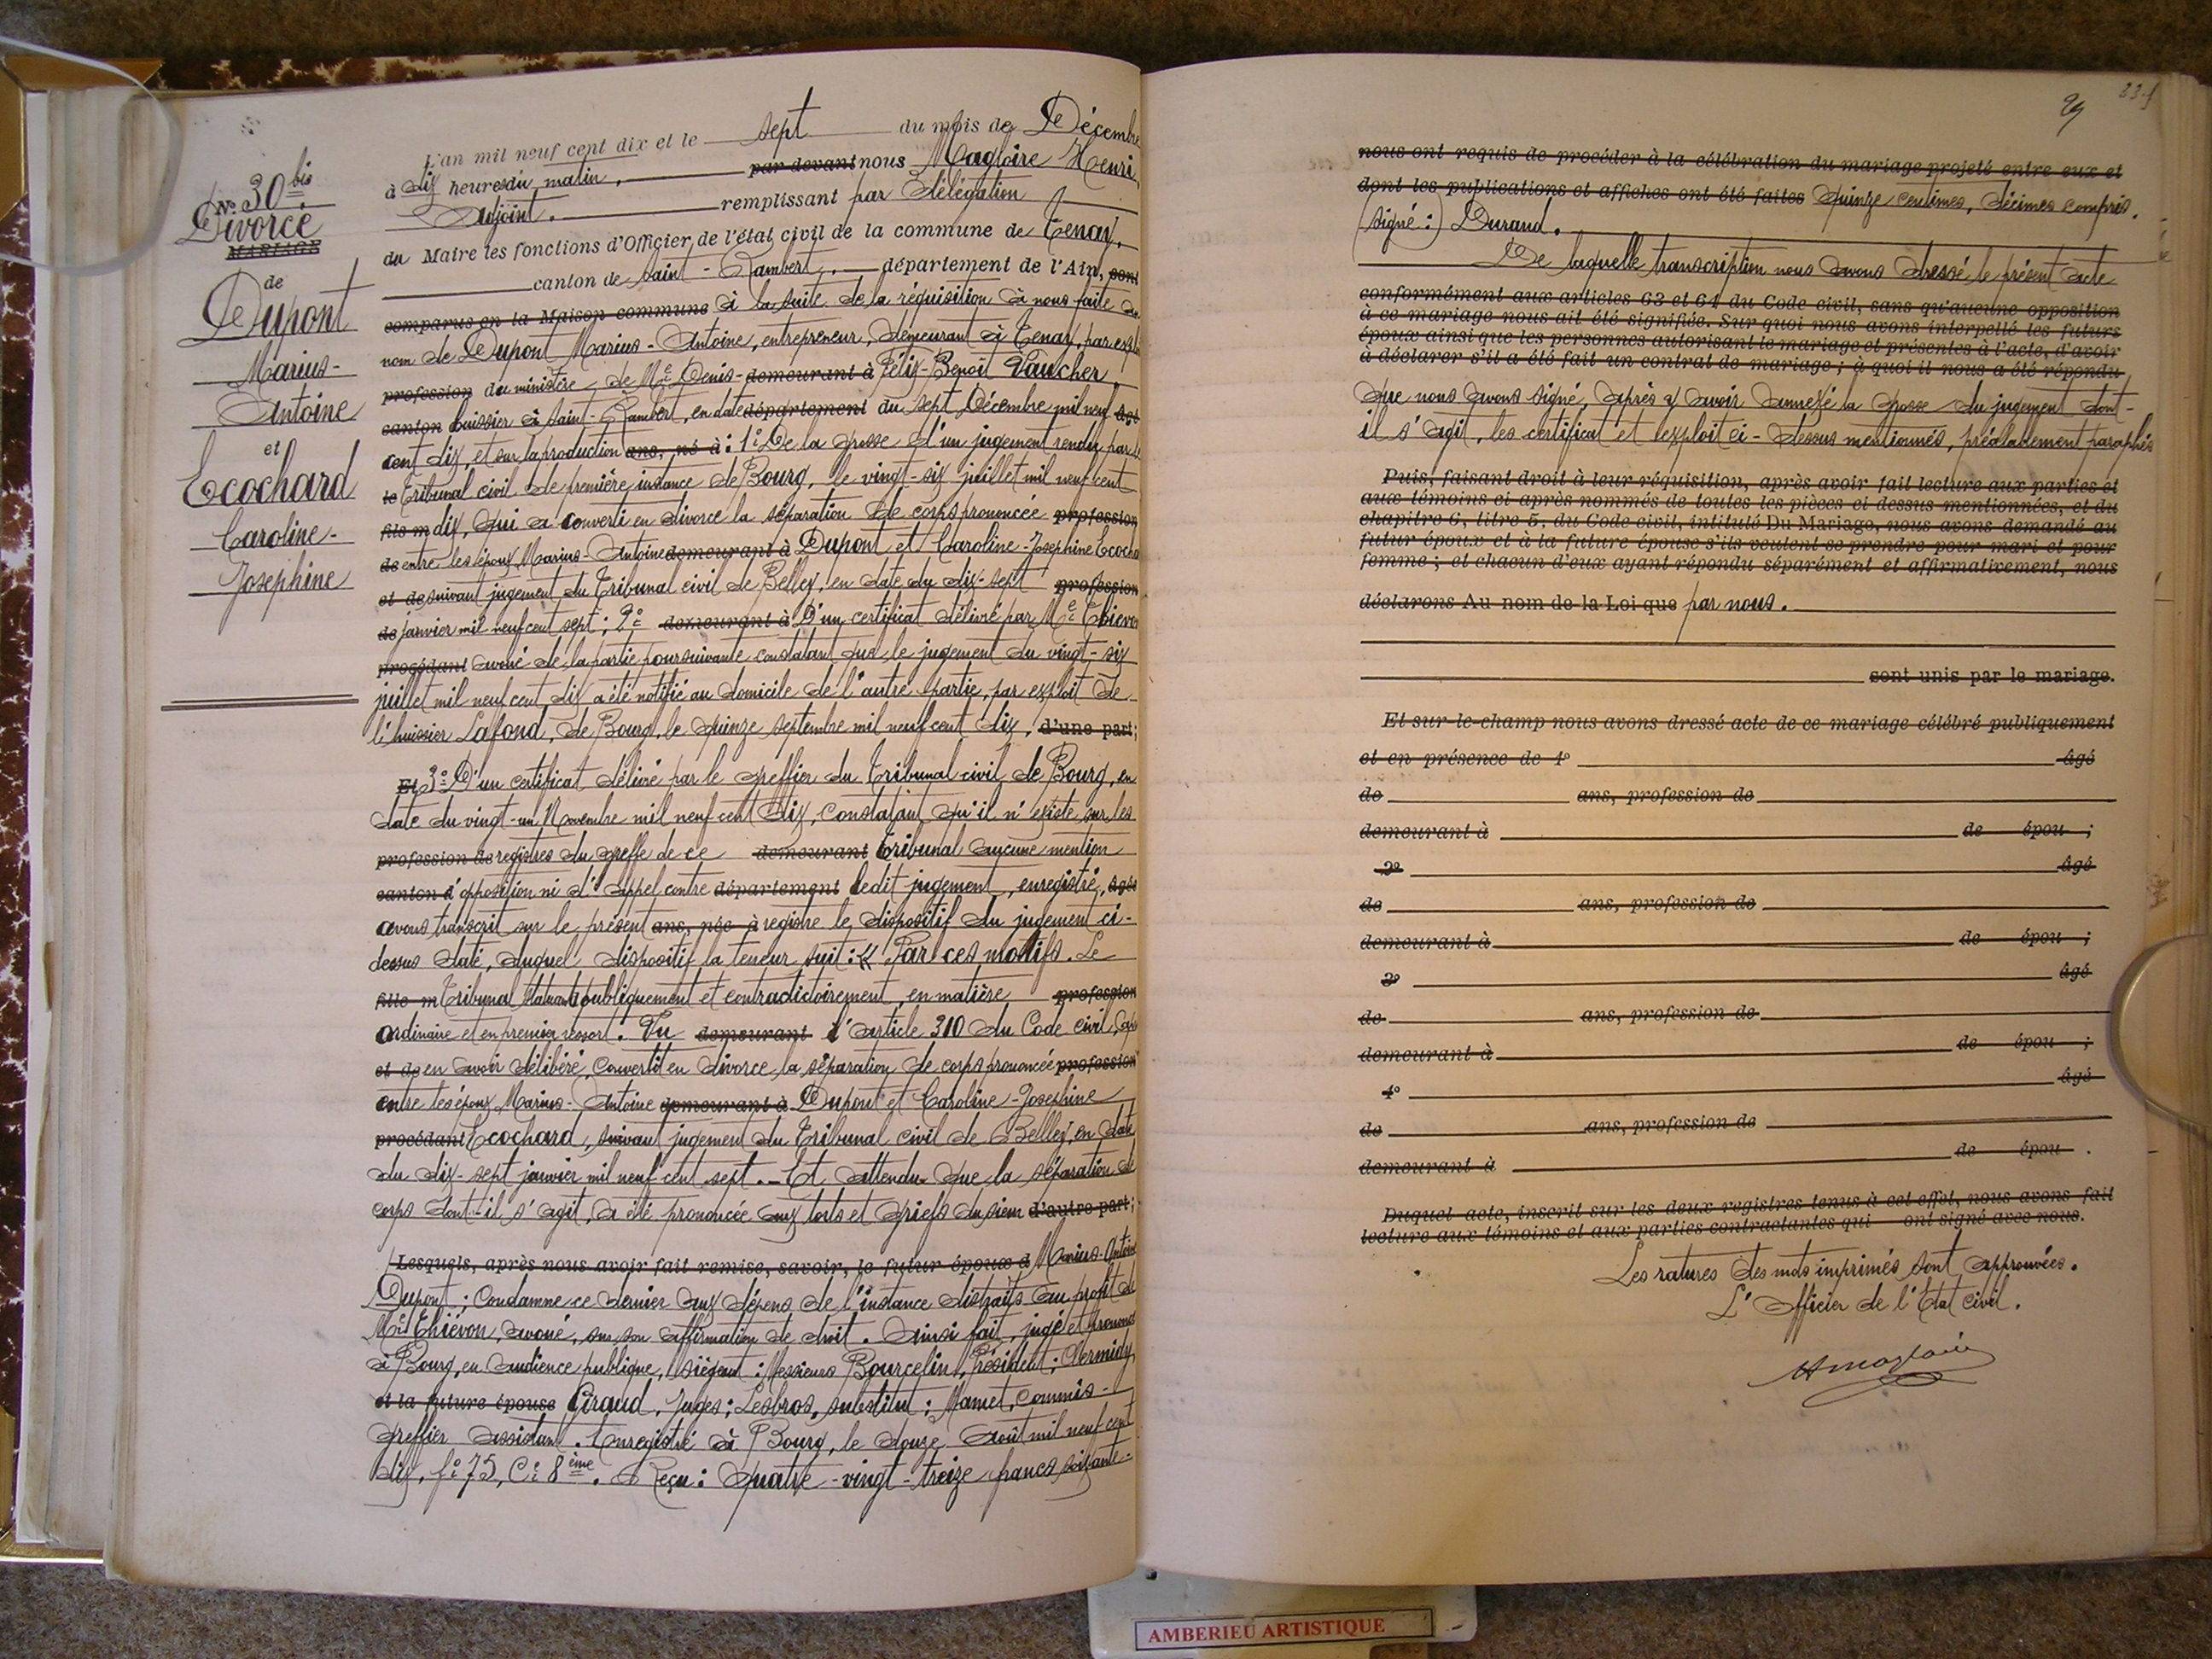 N° 30 bis
Divorce
MARIAGE
de
Dupont
Marius-
Antoine
et
Ecochard
Caroline-
Josephine
L'an mil neuf cent dix et le sept du mois de Décembre
à dix heures du matin, par devant nous Magloire Henri,
Adjoint. remplissant par délégation
du Maire les fonctions d'Officier de l'état civil de la commune de Tenay,
canton de Saint-Rambert, département de l'Ain, sont
comparus en la Maison commune à la suite de la réquisition à nous faite au
nom de Dupont Marius-Antoine, entrepreneur, demeurant à Tenay, par exploit
profession du ministère de Me Denis- demeurant à Félix-Benoît Vaucher
canton huissier à Saint-Rambert, en date département du sept Décembre mil neuf
cent dix, et sur la production ans, né à : 1° De la grosse d'un jugement rendu par le
le Tribunal civil de première instance de Bourg, le vingt-six juillet mil neuf cent
fils m dix, qui a converti en divorce la séparation de corps prononcée profession
de entre les époux Marius-Antoine demeurant à Dupont et Caroline-Josephine Ecochard
et de suivant jugement du Tribunal civil de Belley, en date du dix-sept profession
de janvier mil neuf cent sept ; 2° demeurant à D'un certificat délivré par Me Thiévon
procédant avoué de la partie poursuivante constatant que le jugement du vingt-six
juillet mil neuf cent dix a été notifié au domicile de l'autre partie, par exploit de
l'huissier Lafond, de Bourg, le quinze septembre mil neuf cent dix ; d'une part;
Et 3° D'un certificat délivré par le greffier du Tribunal civil de Bourg, en
date du vingt-un Novembre mil neuf cent dix, constatant qu'il n'existe sur les
profession de registres du greffe de ce demeurant tribunal aucune mention
canton d'opposition ni d'appel contre département ledit jugement, enregistré, âgée
avons transcrit sur le présent ans, née à registre le dispositif du jugement ci-
dessus daté, duquel dispositif la teneur suit : « Par ces motifs. Le
fille m Tribunal statuant publiquement et contradictoirement, en matière profession
ordinaire et en premier ressort. Vu demeurant l'article 310 du Code civil, après
et de en avoir délibéré, Convertit en divorce la séparation de corps prononcée profession
entre les époux Marius-Antoine demeurant à Dupont et Caroline-Josephine
procédant Ecochard, suivant jugement du Tribunal civil de Belley, en date
du dix-sept janvier mil neuf cent sept. - Et attendu que la séparation de
corps dont il s'agit, a été prononcée aux torts et griefs du sieur d'autre part;
Lesquels, après nous avoir fait remise, savoir, le futur époux d Marius-Antoine
Dupont ; Condamne ce dernier aux dépens de l'instance distraits au profit de
Me Thiévon, avoué, sur son affirmation de droit. Ainsi fait, jugé et prononcé
à Bourg, en audience publique, siégeant : Messieurs Bourcelin, Président ;
et la future épouse Giraud, Juges ; Lesbros, substitut ; Mamet, Commis-
greffier assistant. Enregistré à Bourg, le douze Août mil neuf cent
dix, f° 75, C° 8ème. Reçu : Quatre-vingt-treize francs soixante-
29
nous ont requis de procéder à la célébration du mariage projeté entre eux et
dont les publications et affiches ont été faites Quinze centimes, décimes compris.
(signé :) Durand.
De laquelle transcription nous avons dressé le présent acte
conformément aux articles 63 et 64 du Code civil, sans qu'aucune opposition
à ce mariage nous ait été signifiée. Sur quoi nous avons interpellé les futurs
époux ainsi que les personnes autorisant le mariage et présentes à l'acte, d'avoir
à déclarer s'il a été fait un contrat de mariage ; à quoi il nous a été répondu
que nous avons signé, après y avoir annexé la grosse du jugement dont
il s'agit, les certificat et exploit ci-dessus mentionnés, préalablement paraphés
Puis, faisant droit à leur réquisition, après avoir fait lecture aux parties et
aux témoins ci après nommés de toutes les pièces ci dessus mentionnées, et du
chapitre 6, titre 5, du Code civil, intitulé Du Mariage, nous avons demandé au
futur époux et à la future épouse s'ils veulent se prendre pour mari et pour
femme ; et chacun d'eux ayant répondu séparément et affirmativement, nous
déclarons Au nom de la Loi que par nous.
sont unis par le mariage.
Et sur-le-champ nous avons dressé acte de ce mariage célébré publiquement
et en présence de 1° âgé
de ans, profession de
demeurant à de épou ;
2° âgé
de ans, profession de
demeurant à de épou ;
3° âgé
de ans, profession de
demeurant à de épou ;
4° âgé
de ans, profession de
demeurant à de épou .
Duquel acte, inscrit sur les deux registres tenus à cet effet, nous avons fait
lecture aux témoins et aux parties contractantes qui ont signé avec nous.
Les ratures des mots imprimés sont approuvées.
L'Officier de l'Etat civil.
HMagloire
AMBERIEU ARTISTIQUE